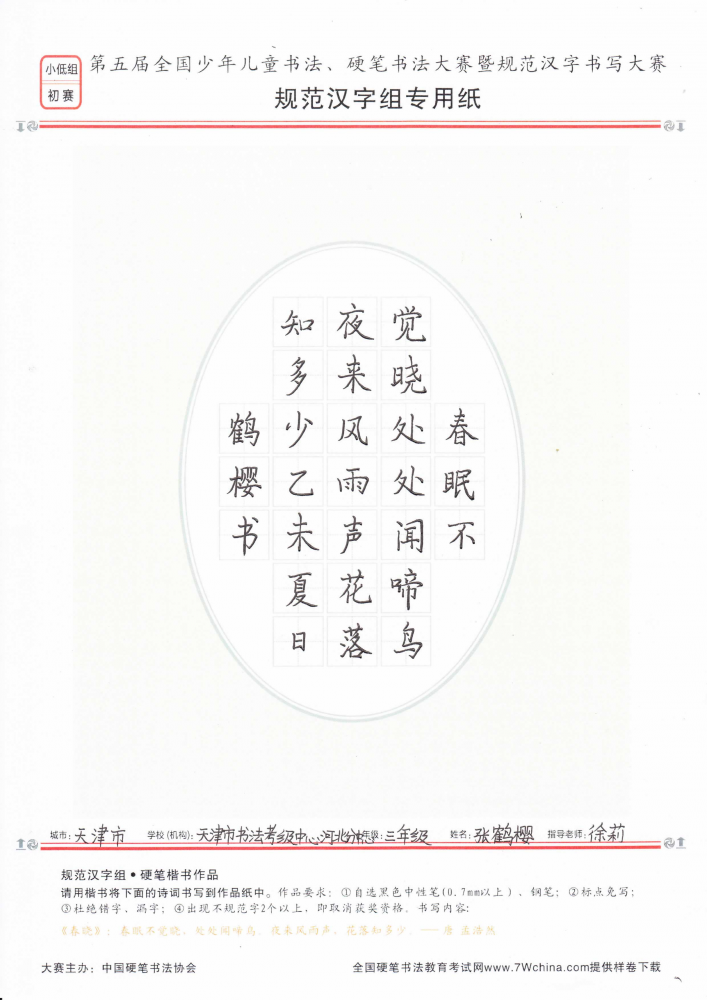 小低组
初赛
第五届全国少年儿童书法、硬笔书法大赛暨规范汉字书写大赛
规范汉字组专用纸
春眠不
觉晓处处闻啼鸟
夜来风雨声花落
知多少乙未夏日
鹤樱书
城市：天津市 学校(机构)：天津市书法考级中心河北分中心 年级：三年级 姓名：张鹤樱 指导老师：徐莉
规范汉字组●硬笔楷书作品
请用楷书将下面的诗词书写到作品纸中。作品要求：①自选黑色中性笔(0.7mm以上)、钢笔；②标点免写；
③杜绝错字、漏字；④出现不规范字2个以上，即取消获奖资格。书写内容：
《春晓》：春眠不觉晓，处处闻啼鸟。夜来风雨声，花落知多少。——唐 孟浩然
大赛主办：中国硬笔书法协会
全国硬笔书法教育考试网www.7Wchina.com提供样卷下载